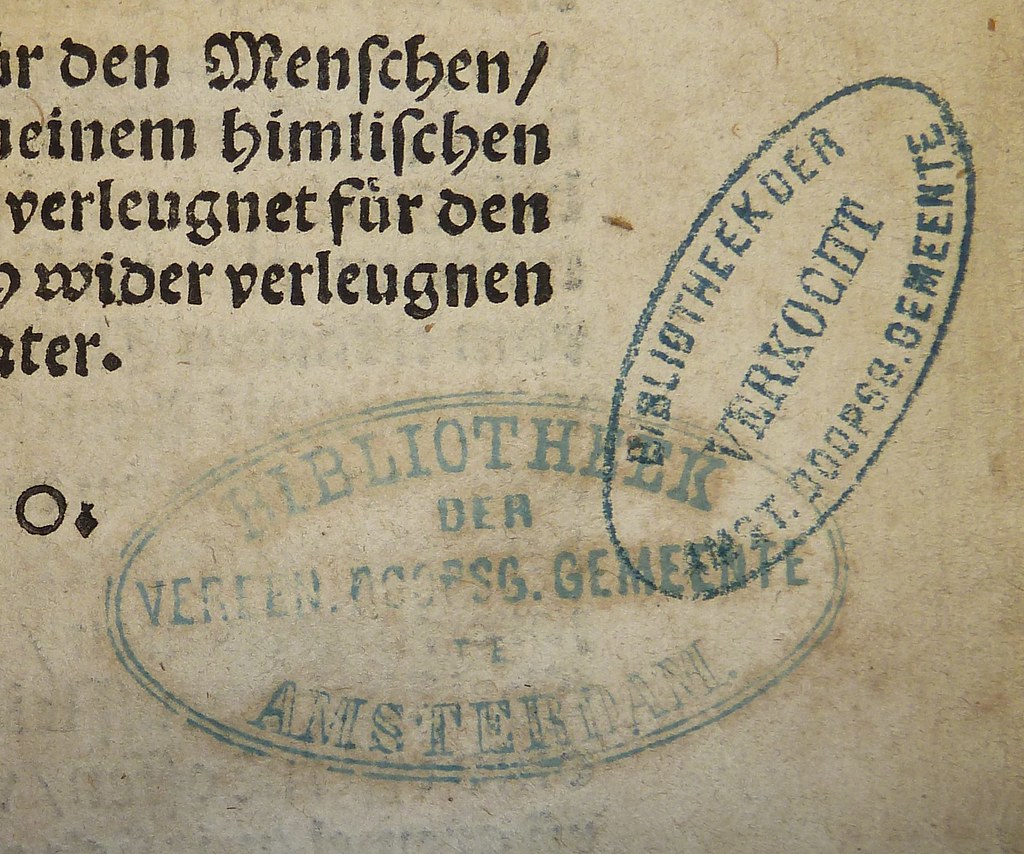 den Menschen/
himlischen
verleugnet für den
wider verleugnen
O.
BIBLIOTHEEK
DER
VEREEN. DOOPSG. GEMEENTE
TE
AMSTERDAM.
BIBLIOTHEEK DER
VERKOCHT
AMST. DOOPSG. GEMEENTE